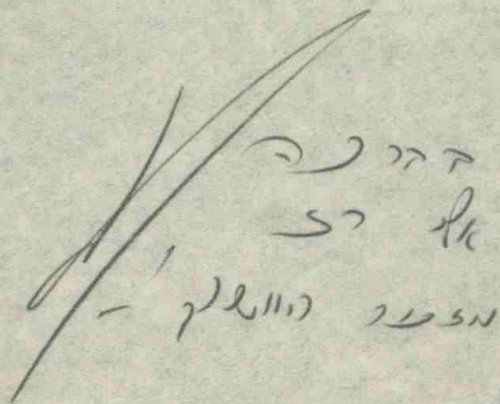 בברכה
אלי רז
מזכיר המושב